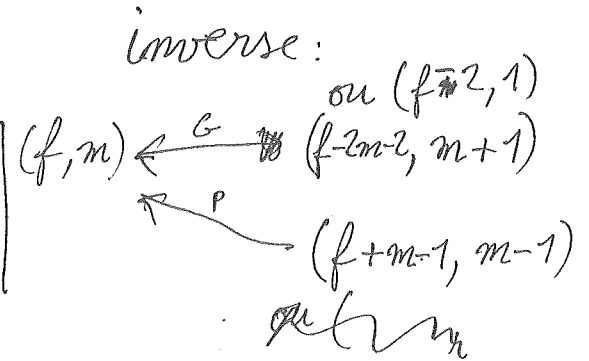 inverse :
ou (f-2, 1)
(f, m) ← G (f-2m-2, m+1)
P (f+m-1, m-1)
ou (